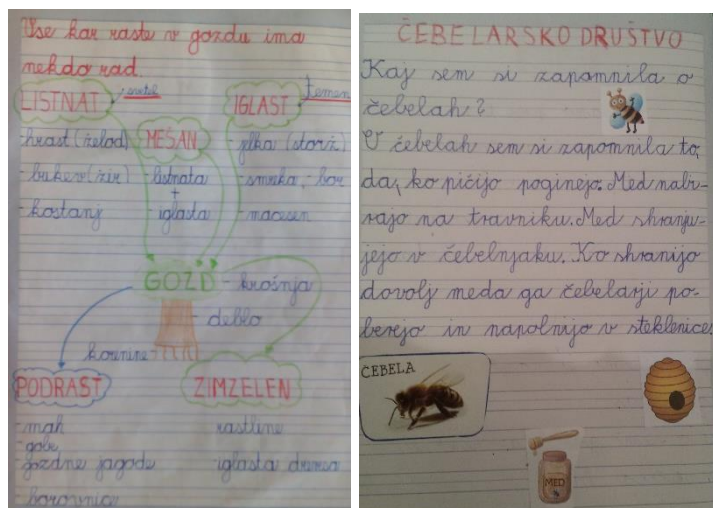 Vse kar raste v gozdu ima
nekdo rad.
LISTNAT svetel
IGLAST temen
MEŠAN
- hrast (želod)
- bukev (žir)
- kostanj
- listnata
+
- iglasta
- jelka (storž)
- smreka, - bor
- macesen
GOZD - krošnja
- deblo
korenine
PODRAST
- mah
- gobe
- gozdne jagode
- borovnice
ZIMZELEN
rastline
iglasta drevesa
ČEBELARSKO DRUŠTVO
Kaj sem si zapomnila o
čebelah?
O čebelah sem si zapomnila to,
da, ko pičijo poginejo. Med nabi-
rajo na travniku. Med shranju-
jejo v čebelnjaku. Ko shranijo
dovolj meda ga čebelarji po-
berejo in napolnijo v steklenice.
ČEBELA
MED